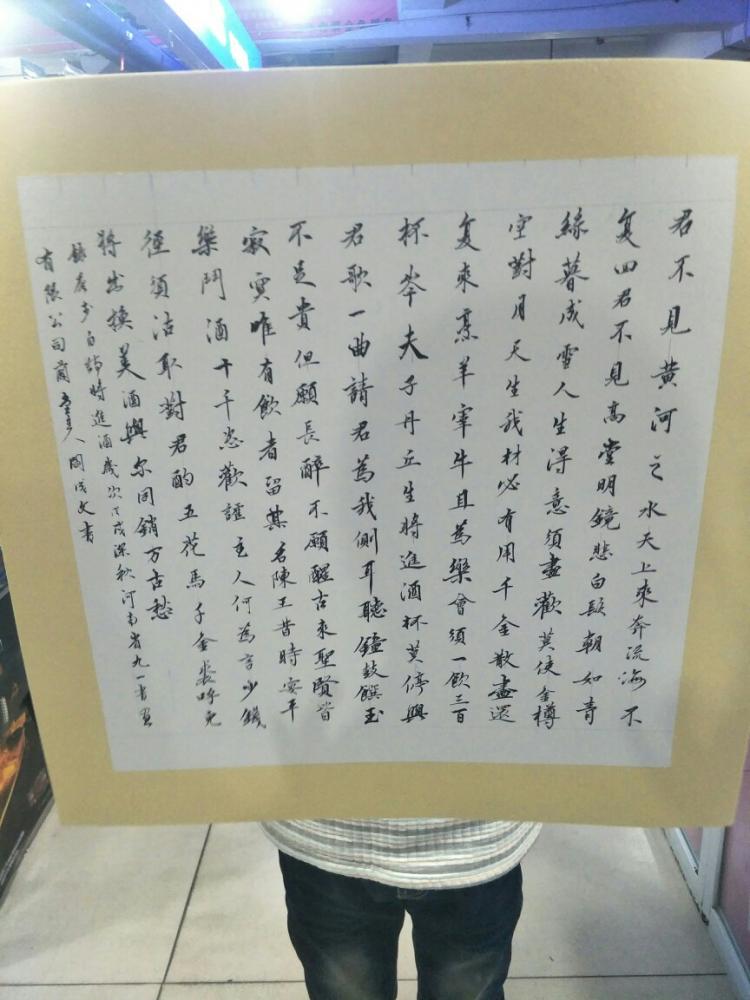 君不見黄河之水天上來奔流海不
复回君不見高堂明鏡悲白髮朝如青
絲暮成雪人生得意須盡歡莫使金樽
空對月天生我材必有用千金散盡還
复來烹羊宰牛且為樂會須一飲三百
杯岑夫子丹丘生將進酒杯莫停與
君歌一曲請君為我側耳聽鐘鼓饌玉
不足貴但願長醉不願醒古來聖賢皆
寂寞唯有飲者留其名陳王昔時宴平
樂鬥酒十千恣歡謔主人何為言少錢
徑須沽取對君酌五花馬千金裘呼兒
將出換美酒與尔同銷万古愁
錄李白詩將進酒歲次戊戌深秋河南省九一書画
有限公司蘭周成文書